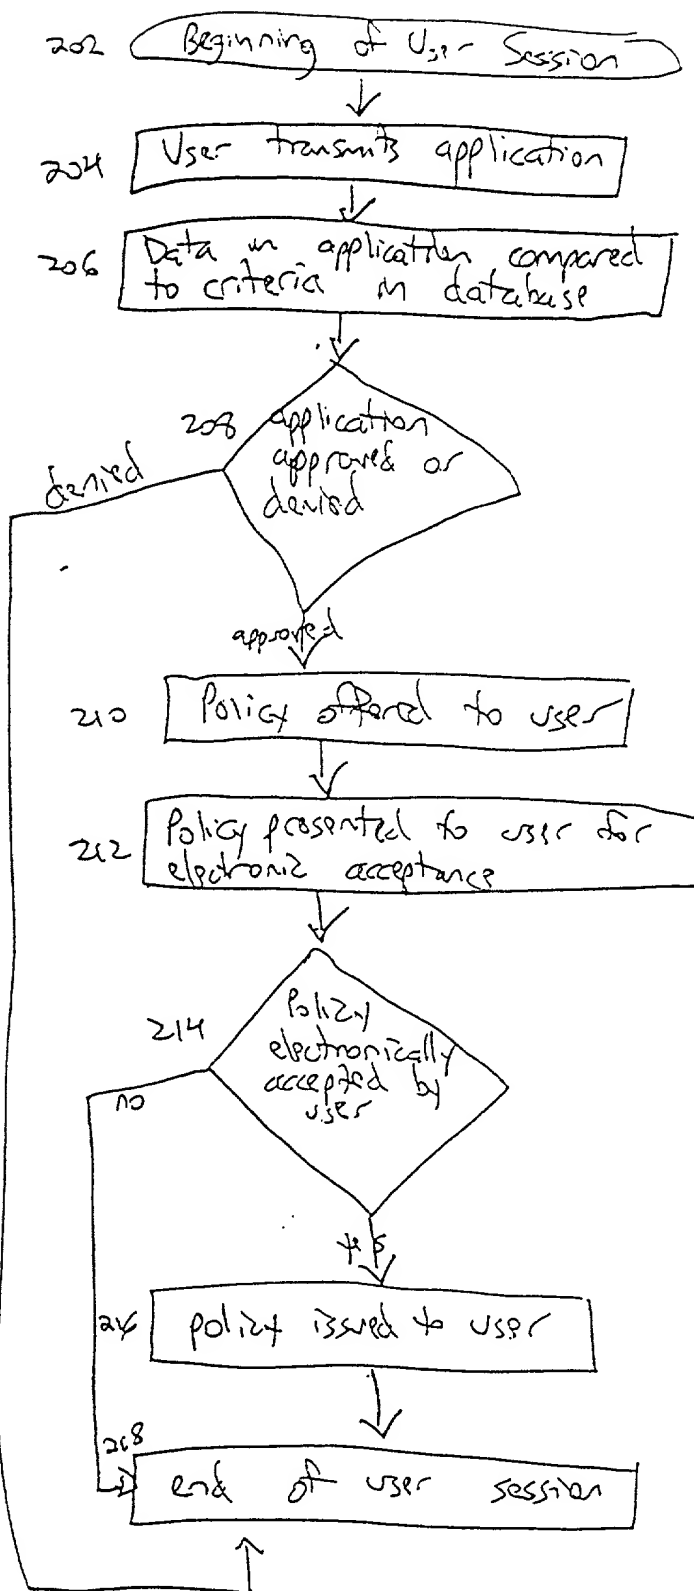 202 Beginning of User Session
204 User transmits application
206 Data in application compared
to criteria in database
208 application
approved or
denied
denied
approved
210 Policy offered to user
212 Policy presented to user for
electronic acceptance
214 Policy
electronically
accepted by
user
no
yes
216 policy issued to user
218
end of user session